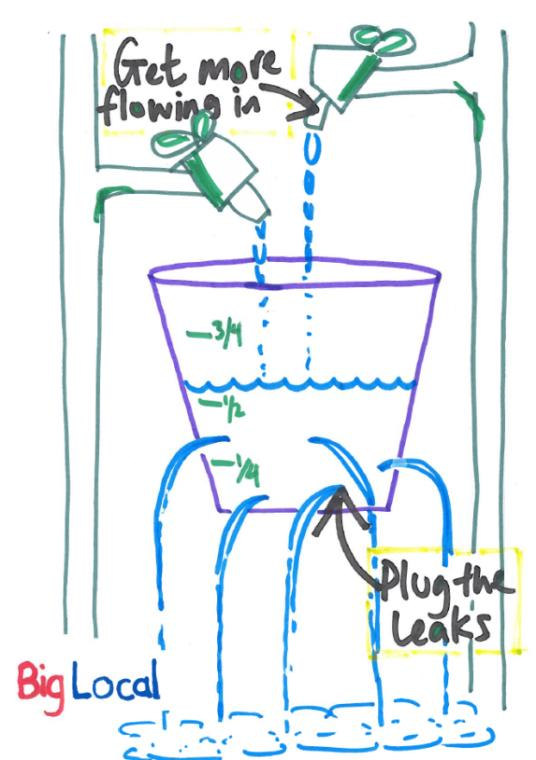 Get more
flowing in
3/4
1/2
1/4
Plug the
Leaks
Big Local